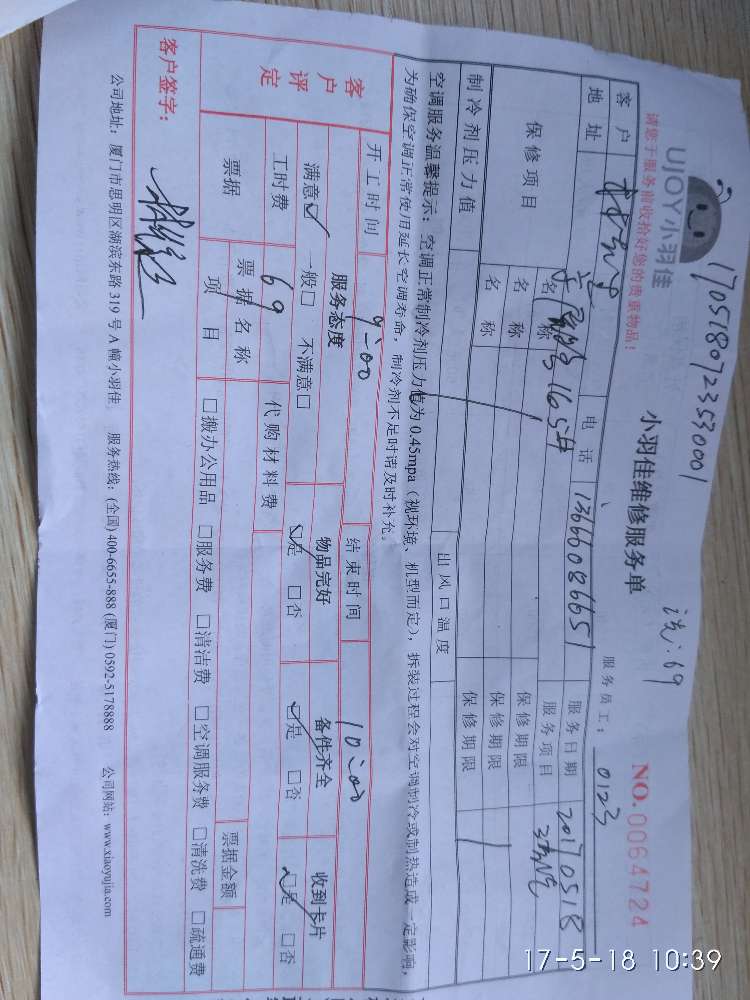 170518072353001
洗:69
UJOY小羽佳
小羽佳维修服务单
NO.0064724
请您于服务前收拾好您的贵重物品!
服务员工: 0123
客户 电话 13666086651 服务日期 20170518
地址 165# 服务项目
保修项目 名称 保修期限
名称 保修期限
名称 保修期限
制冷剂压力值 出风口温度
空调服务温馨提示: 空调正常制冷剂压力值为0.45mpa(视环境、机型而定), 拆装过程会对空调制冷或制热造成一定影响,
为确保空调正常使用延长空调寿命, 制冷剂不足时请及时补充。
开工时间 9:00 结束时间 10:00
客户评定 服务态度 物品完好 备件齐全 收到卡片
满意☑ 一般□ 不满意□ ☑是 □否 ☑是 □否 ☑是 □否
工时费 69 代购材料费
票据 票据名称 票据金额
项目 □搬办公用品 □服务费 □清洁费 □空调服务费 □清洗费 □疏通费
客户签字:
公司地址: 厦门市思明区湖滨东路319号A幢小羽佳 服务热线: (全国) 400-6655-888 (厦门) 0592-5178888 公司网站: www.xiaoyujia.com
17-5-18 10:39